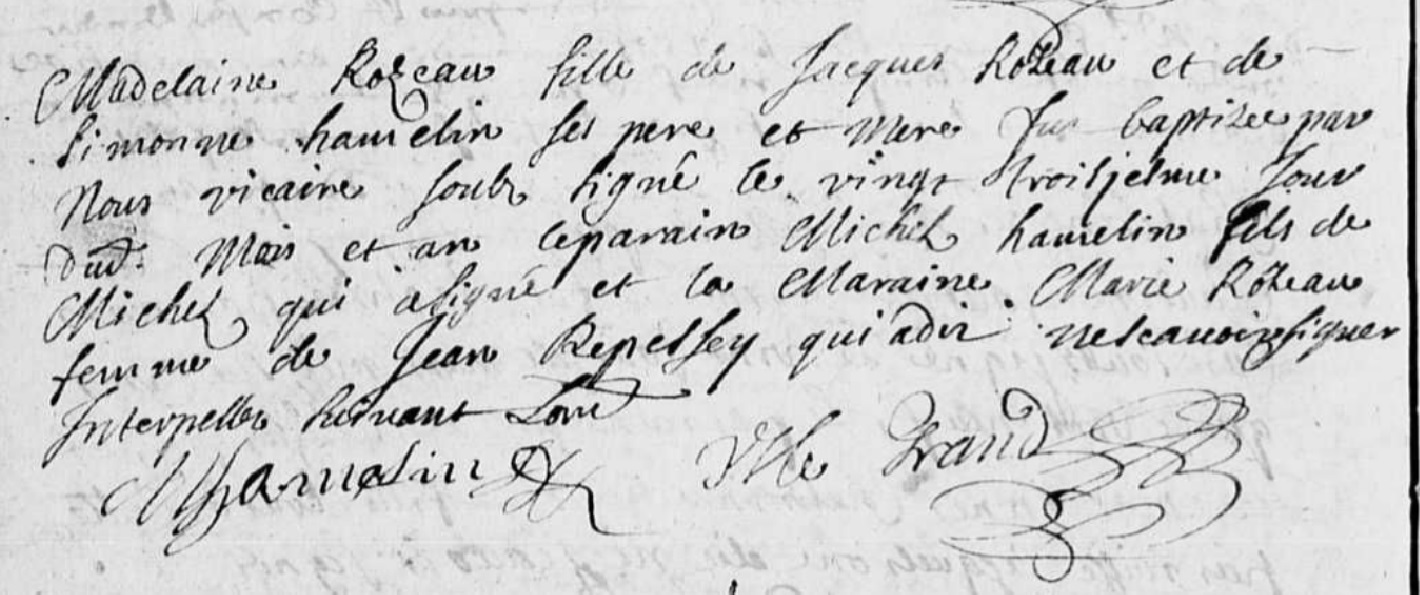 Madelaine Rozeau fille de Jacques Rozeau et de
Simonne hamelin ses pere et mere fut baptizee par
Nous vicaire soubz signé le vingt troisjesme Jour
dud. Mois et an le parain Michel hamelin fils de
Michel qui a signé et la Maraine Marie Rozeau
femme de Jean qui a dit ne scavoir signer
Interpellee suivant Lord
M hamelin Le Grand